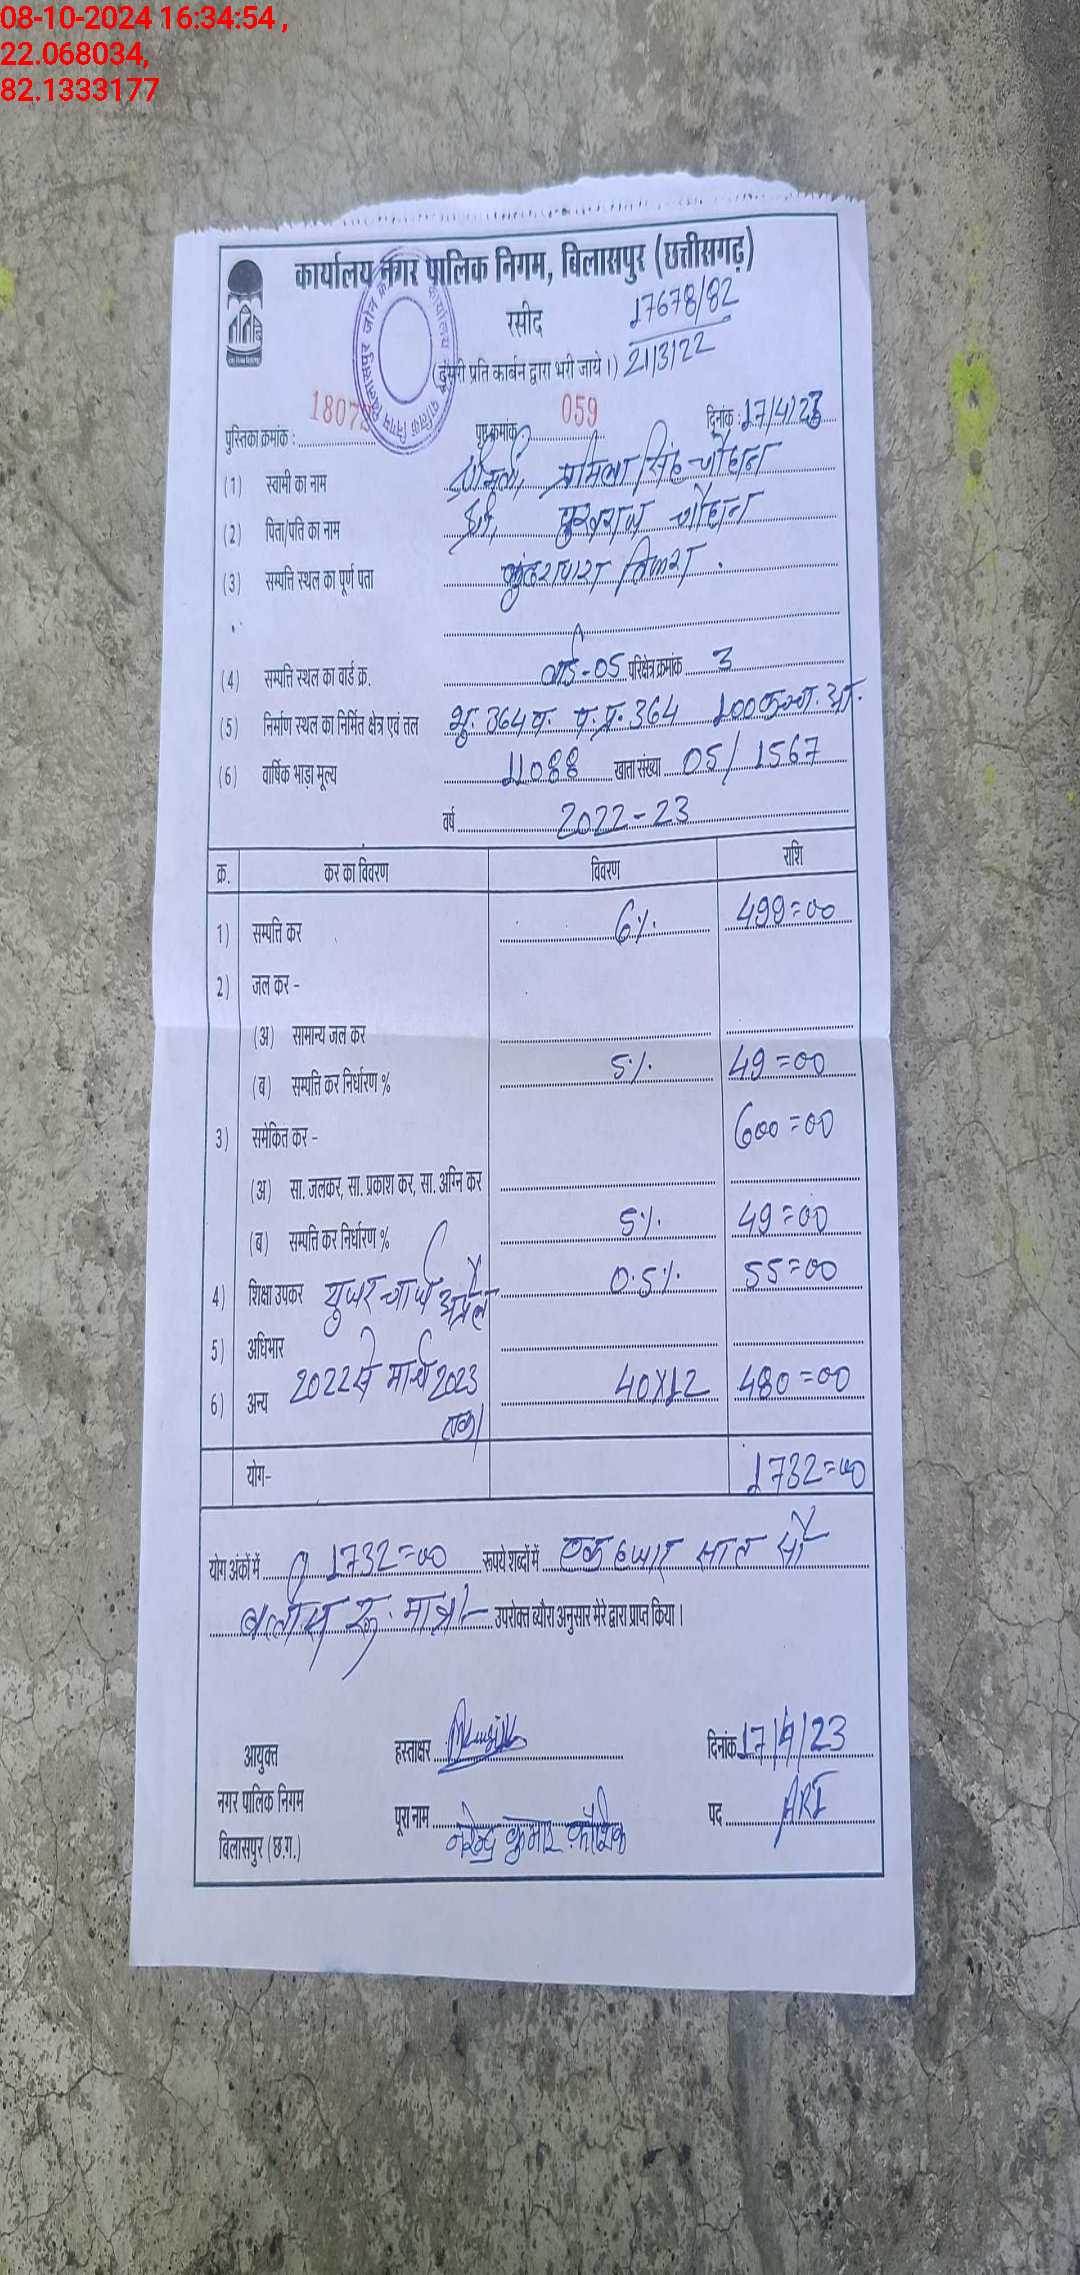 08-10-2024 16:34:54 ,
22.068034,
82.1333177
कार्यालय नगर पालिक निगम, बिलासपुर (छत्तीसगढ़)
रसीद 17678/82
(दूसरी प्रति कार्बन द्वारा भरी जाये।) 21/3/22
पुस्तिका क्रमांक : 1807 पृष्ठ क्रमांक 059 दिनांक : 17/4/23
(1) स्वामी का नाम श्रीमती, प्रमिला सिंह चौहान
(2) पिता/पति का नाम श्री, पुखराज चौहान
(3) सम्पत्ति स्थल का पूर्ण पता
(4) सम्पत्ति स्थल का वार्ड क्र. वार्ड-05 परिक्षेत्र क्रमांक 3
(5) निर्माण स्थल का निर्मित क्षेत्र एवं तल भू. 364 व. प. प्र. 364
(6) वार्षिक भाड़ा मूल्य 11088 खाता संख्या 05/1567
वर्ष 2022-23
क्र. कर का विवरण विवरण राशि
1) सम्पत्ति कर 6% 499=00
2) जल कर -
(अ) सामान्य जल कर
(ब) सम्पत्ति कर निर्धारण % 5% 49=00
3) समेकित कर - 600=00
(अ) सा. जलकर, सा. प्रकाश कर, सा. अग्नि कर
(ब) सम्पत्ति कर निर्धारण % 5% 49=00
4) शिक्षा उपकर यूजर चार्ज अप्रैल 0.5% 55=00
5) अधिभार
6) अन्य 2022 से मार्च 2023 40x12 480=00
तक।
योग- 1732=00
योग अंकों में 1732=00 रूपये शब्दों में एक हजार सात सौ
बत्तीस रू. मात्र।- उपरोक्त ब्यौरा अनुसार मेरे द्वारा प्राप्त किया।
आयुक्त हस्ताक्षर दिनांक 17/4/23
नगर पालिक निगम पूरा नाम नरेन्द्र कुमार कौशिक पद ARI
बिलासपुर (छ.ग.)